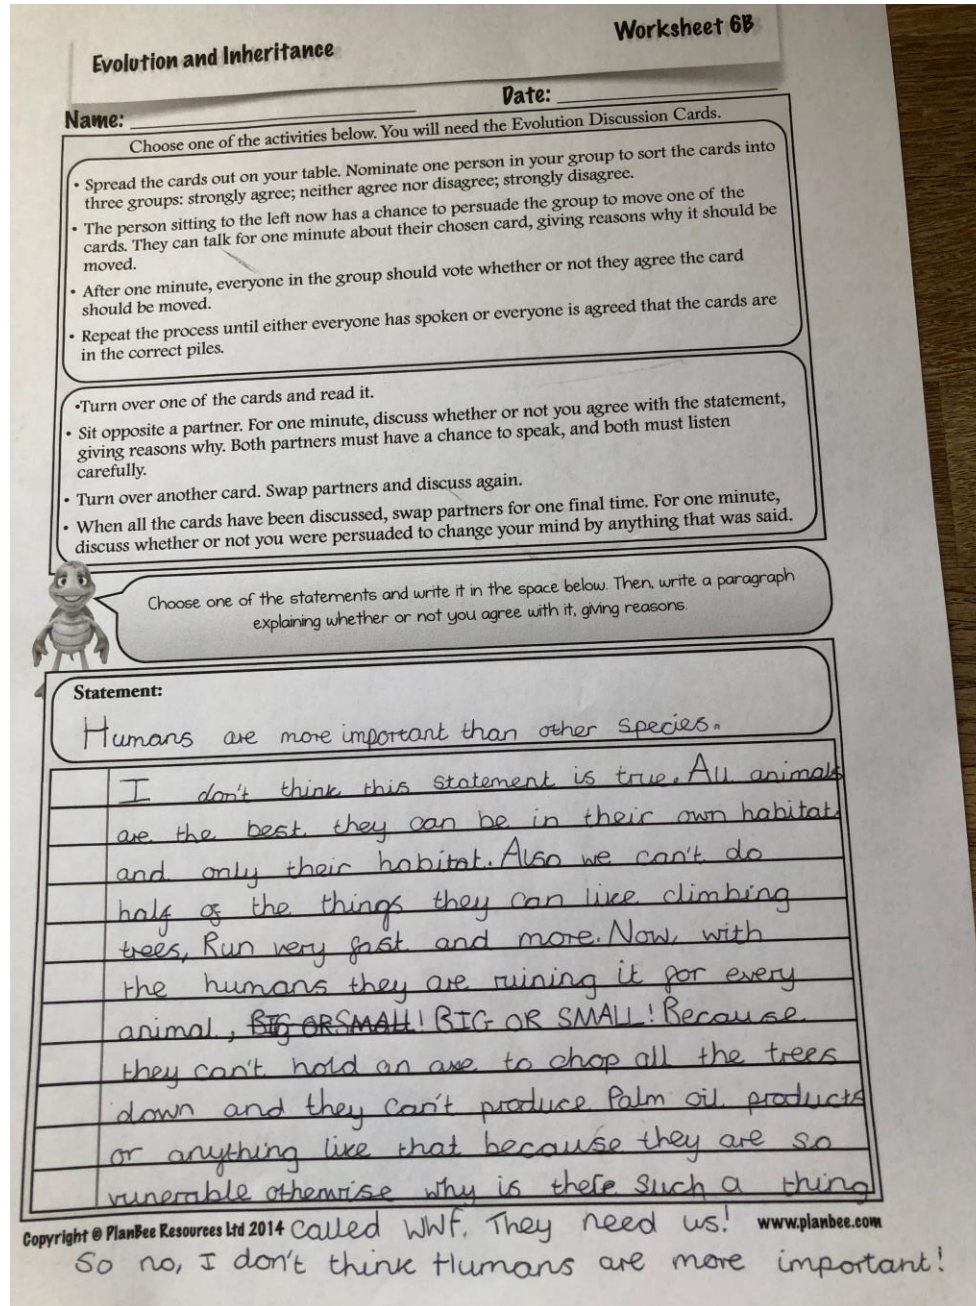 Evolution and Inheritance
Worksheet 6B
Name:
Date:
Choose one of the activities below. You will need the Evolution Discussion Cards.
• Spread the cards out on your table. Nominate one person in your group to sort the cards into
three groups: strongly agree; neither agree nor disagree; strongly disagree.
• The person sitting to the left now has a chance to persuade the group to move one of the
cards. They can talk for one minute about their chosen card, giving reasons why it should be
moved.
• After one minute, everyone in the group should vote whether or not they agree the card
should be moved.
• Repeat the process until either everyone has spoken or everyone is agreed that the cards are
in the correct piles.
•Turn over one of the cards and read it.
• Sit opposite a partner. For one minute, discuss whether or not you agree with the statement,
giving reasons why. Both partners must have a chance to speak, and both must listen
carefully.
• Turn over another card. Swap partners and discuss again.
• When all the cards have been discussed, swap partners for one final time. For one minute,
discuss whether or not you were persuaded to change your mind by anything that was said.
Choose one of the statements and write it in the space below. Then, write a paragraph
explaining whether or not you agree with it, giving reasons.
Statement:
Humans are more important than other species.
I don't think this statement is true. All animals
are the best they can be in their own habitat
and only their habitat. Also we can't do
half of the things they can like climbing
trees, Run very fast and more. Now, with
the humans they are ruining it for every
animal, BIG OR SMALL! BIG OR SMALL! Because
they can't hold an axe to chop all the trees
down and they can't produce Palm oil products
or anything like that because they are so
vunerable otherwise why is there such a thing
Copyright © PlanBee Resources Ltd 2014 called WWF. They need us! www.planbee.com
So no, I don't think Humans are more important!